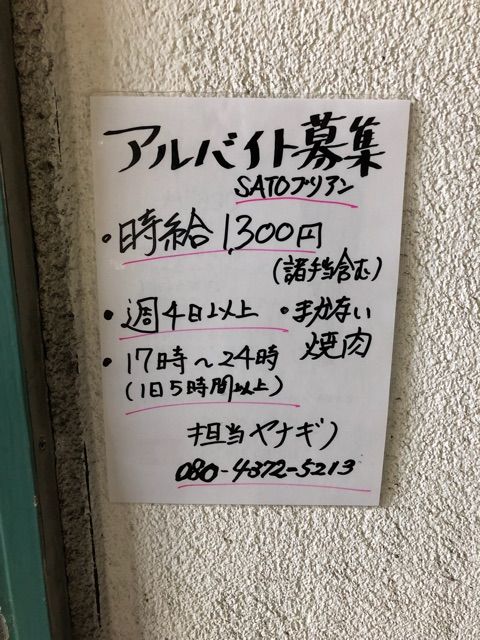 アルバイト募集
SATOブリアン
・時給1,300円
(諸手当含む)
・週4日以上
・まかない
焼肉
・17時～24時
(1日5時間以上)
担当ヤナギノ
080-4372-5213